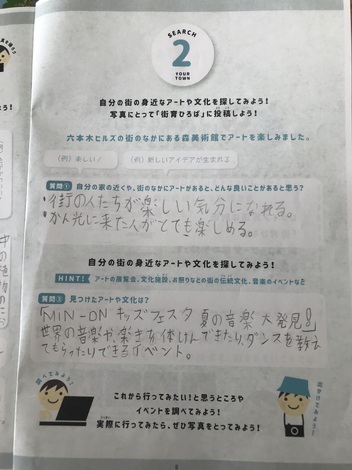 SEARCH
2
YOUR TOWN
自分の街の身近なアートや文化を探してみよう！
写真にとって「街育ひろば」に投稿しよう！
六本木ヒルズの街のなかにある森美術館でアートを楽しみました。
（例）楽しい！
（例）新しいアイデアが生まれる
質問① 自分の家の近くや、街のなかにアートがあると、どんな良いことがあると思う？
・街の人たちが楽しい気分になれる。
・かん光に来た人がとても楽しめる。
自分の街の身近なアートや文化を探してみよう！
HINT! アートの展覧会、文化施設、お祭りなどの街の伝統文化、音楽のイベントなど
質問② 見つけたアートや文化は？
「MIN-ON キッズフェスタ 夏の音楽 大発見！」
世界の音楽や、楽きを体けんできたり、ダンスを教え
てもらったりできるイベント。
調べてみよう！
出かけてみよう！
これから行ってみたい！と思うところや
イベントを調べてみよう！
実際に行ってみたら、ぜひ写真をとってみよう！